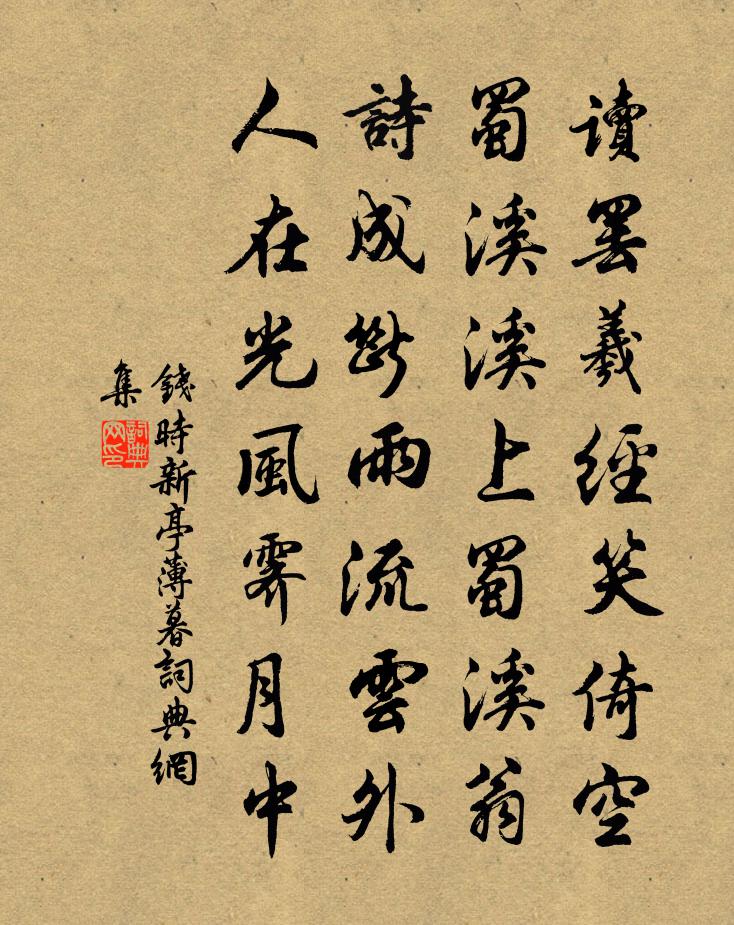 讀罢羲經笑倚空
蜀溪溪上蜀溪翁
詩成斷雨流雲外
人在光風霽月中
錢時新亭薄暮詞典網
集
詞典
网印